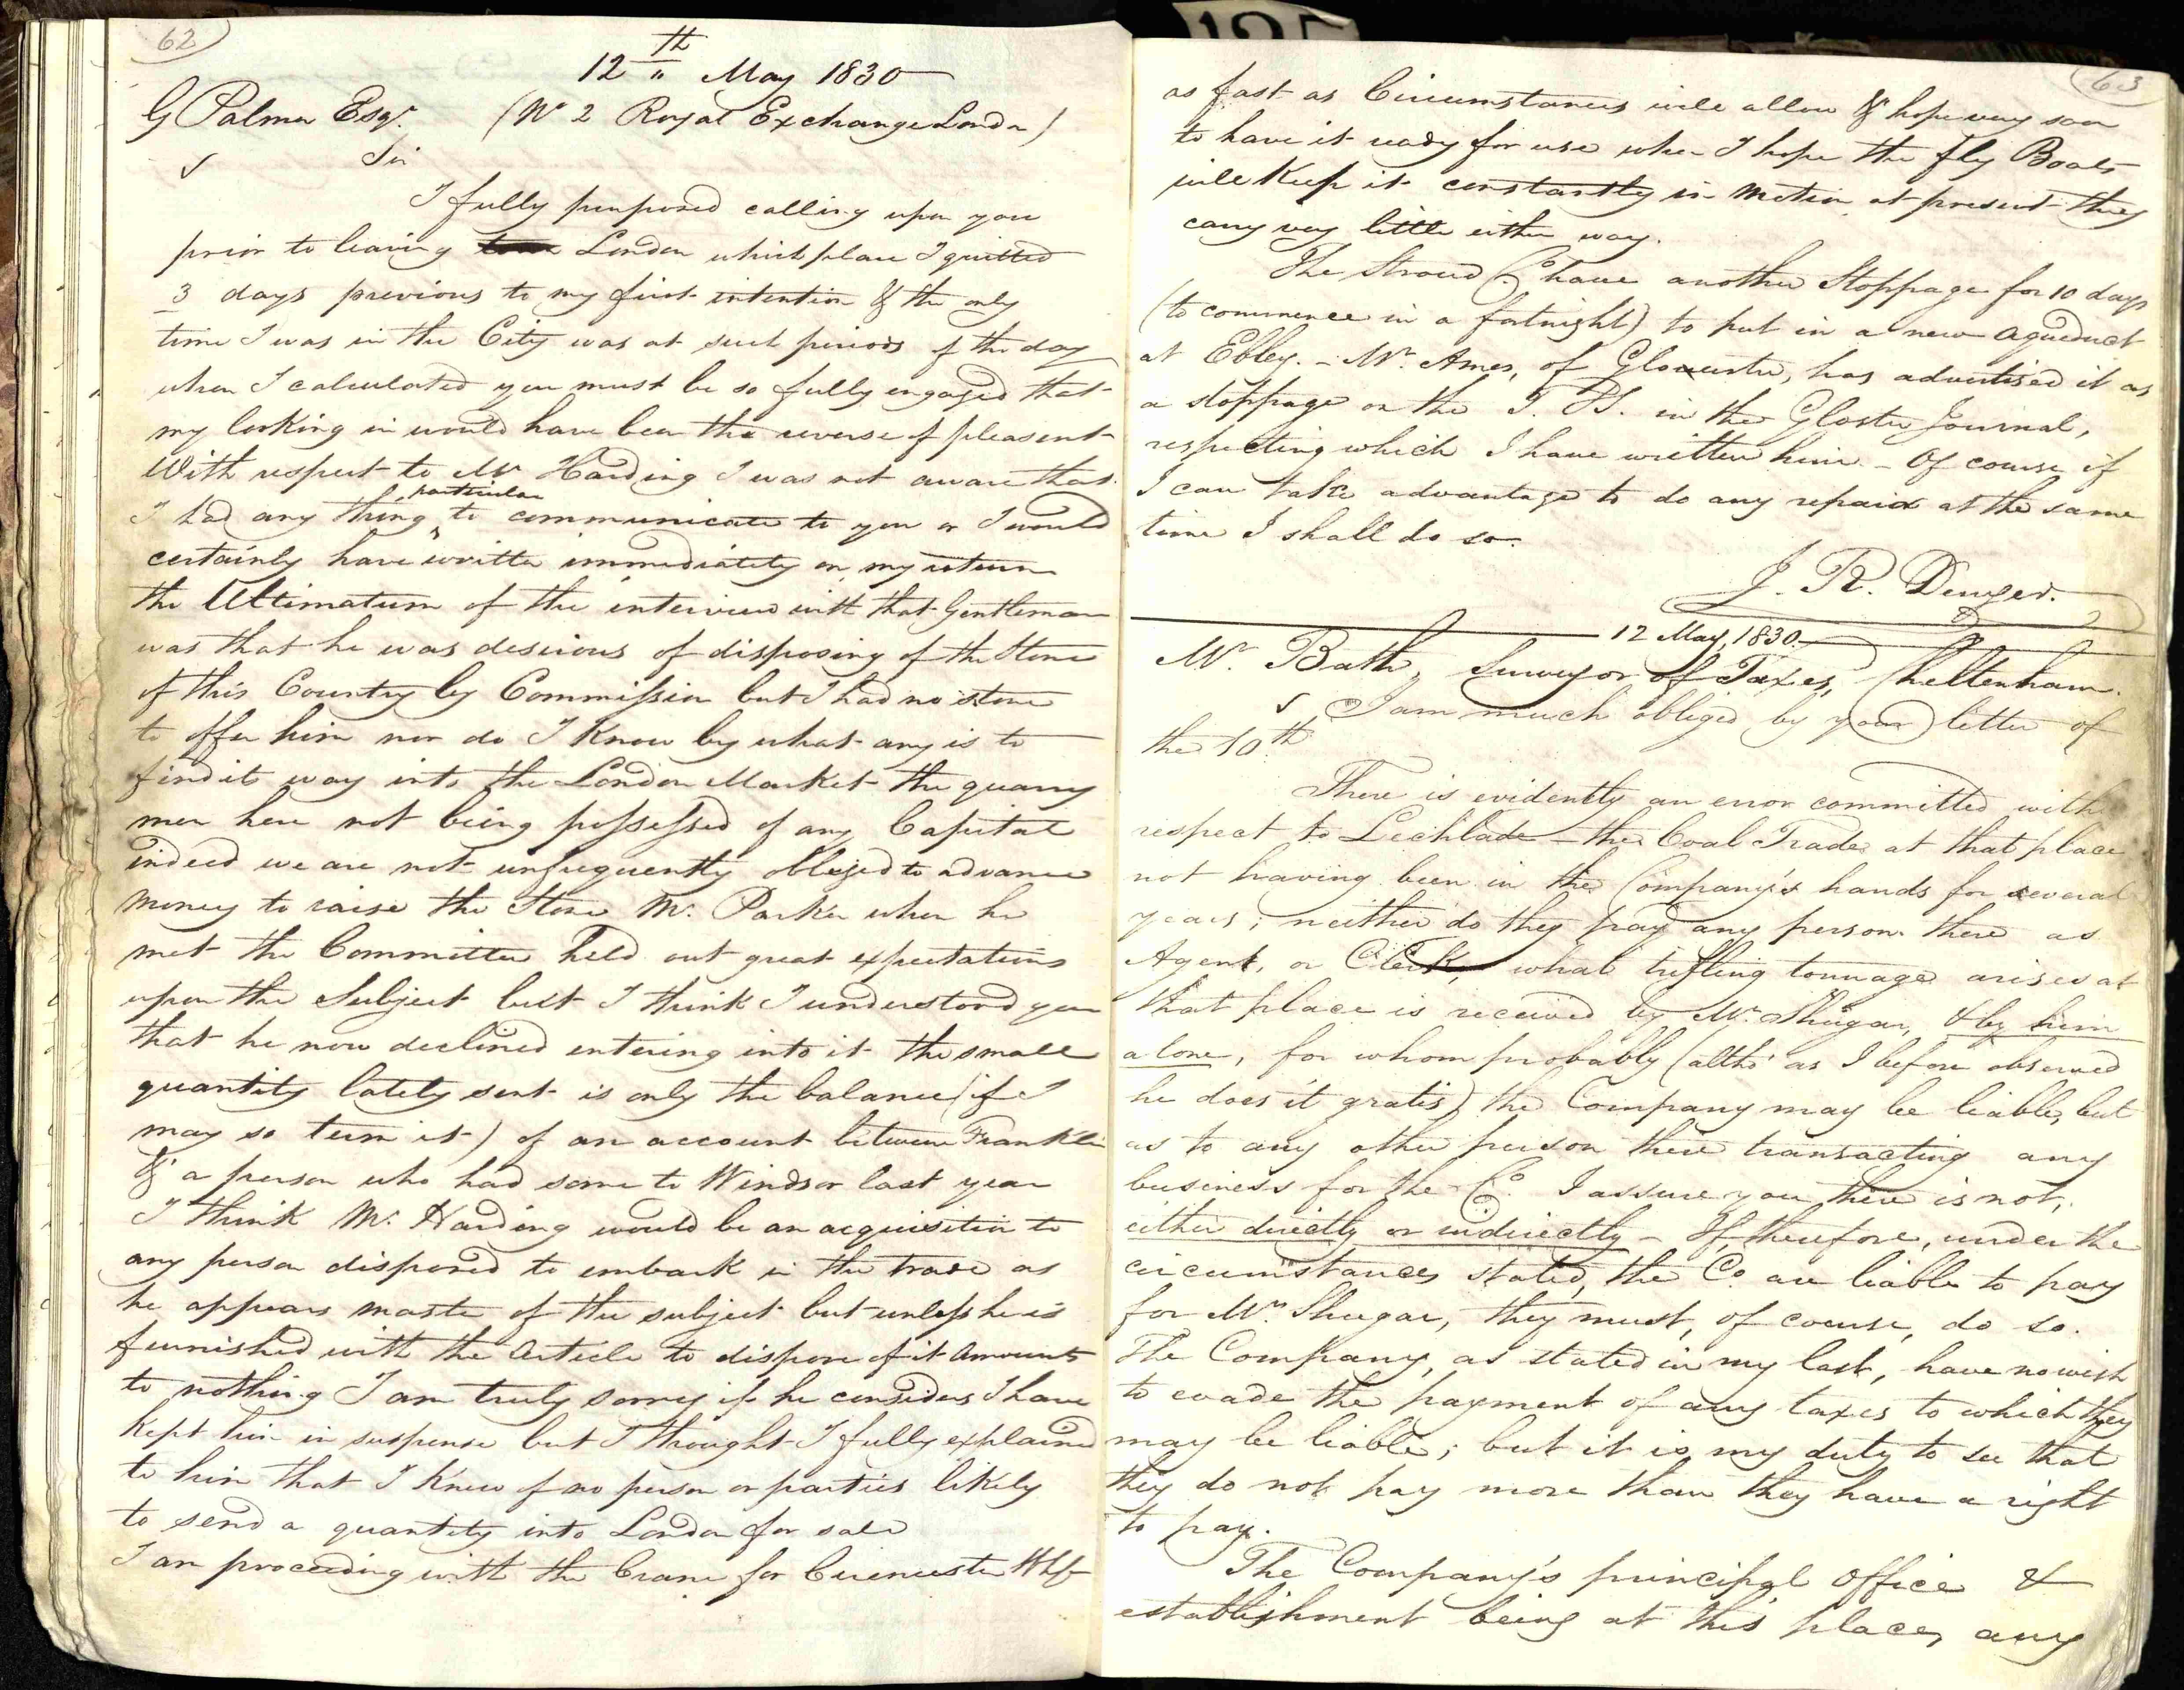 62
12th May 1830
G Palmer Esqr. (No 2 Royal Exchange London)
Sir
I fully purposed calling upon you
prior to leaving London which place I quitted
3 days previous to my first intention & the only
time I was in the City was at such periods of the day
when I calculated you must be so fully engaged that
my looking in would have been the reverse of pleasant
With respect to Mr Harding I was not aware that
I had any thing particular to communicate to you or I would
certainly have written immediately on my return
the Ultimatum of the interview with that Gentleman
was that he was desirous of disposing of the Stone
of this Country by Commission but I had no stone
to offer him nor do I know by what any is to
find its way into the London Market the quarry
men here not being possessed of any Capital
indeed we are not unfrequently obliged to advance
money to raise the Stone Mr. Parker when he
met the Committee held out great expectations
upon the Subject but I think I understood you
that he now declined entering into it the small
quantity lately sent is only the balance (if I
may so term it) of an account between Franklin
& a person who had some to Windsor last year
I think Mr. Harding would be an acquisition to
any person disposed to embark in the trade as
he appears master of the subject but unless he is
furnished with the Article to dispose of it Amounts
to nothing I am truly sorry if he considers I have
kept him in suspense but I thought I fully explained
to him that I knew of no person or parties likely
to send a quantity into London for sale
I am proceeding with the Crane for Cirencester Whf
63
as fast as Circumstances will allow & hope very soon
to have it ready for use when I hope the fly Boats
will keep it constantly in motion at present they
carry very little either way.
The Stroud Co. have another Stoppage for 10 days
(to commence in a fortnight) to put in a new aqueduct
at Ebley. - Mr. Ames, of Gloucester, has advertised it as
a stoppage on the T. & S. in the Gloster Journal,
respecting which I have written him - Of course if
I can take advantage to do any repair at the same
time I shall do so.
J. R. Denyer.
12 May, 1830.
Mr. Bath, Surveyor of Taxes, Cheltenham.
I am much obliged by your letter of
the 10th.
There is evidently an error committed with
respect to Lechlade - the Coal Trade at that place
not having been in the Company's hands for several
years; neither do they pay any person there as
Agent, or Clerk, what trifling tonnage arises at
that place is received by Mr. Shugar, & by him
alone, for whom probably (altho' as I before observed
he does it gratis) the Company may be liable, but
as to any other person there transacting any
business for the Co. I assure you there is not,
either directly or indirectly - If, therefore, under the
circumstances stated, the Co. are liable to pay
for Mr. Shugar, they must, of course, do so.
The Company, as stated in my last, have no wish
to evade the payment of any taxes to which they
may be liable; but it is my duty to see that
they do not pay more than they have a right
to pay.
The Company's principal Office &
establishment being at this place, any